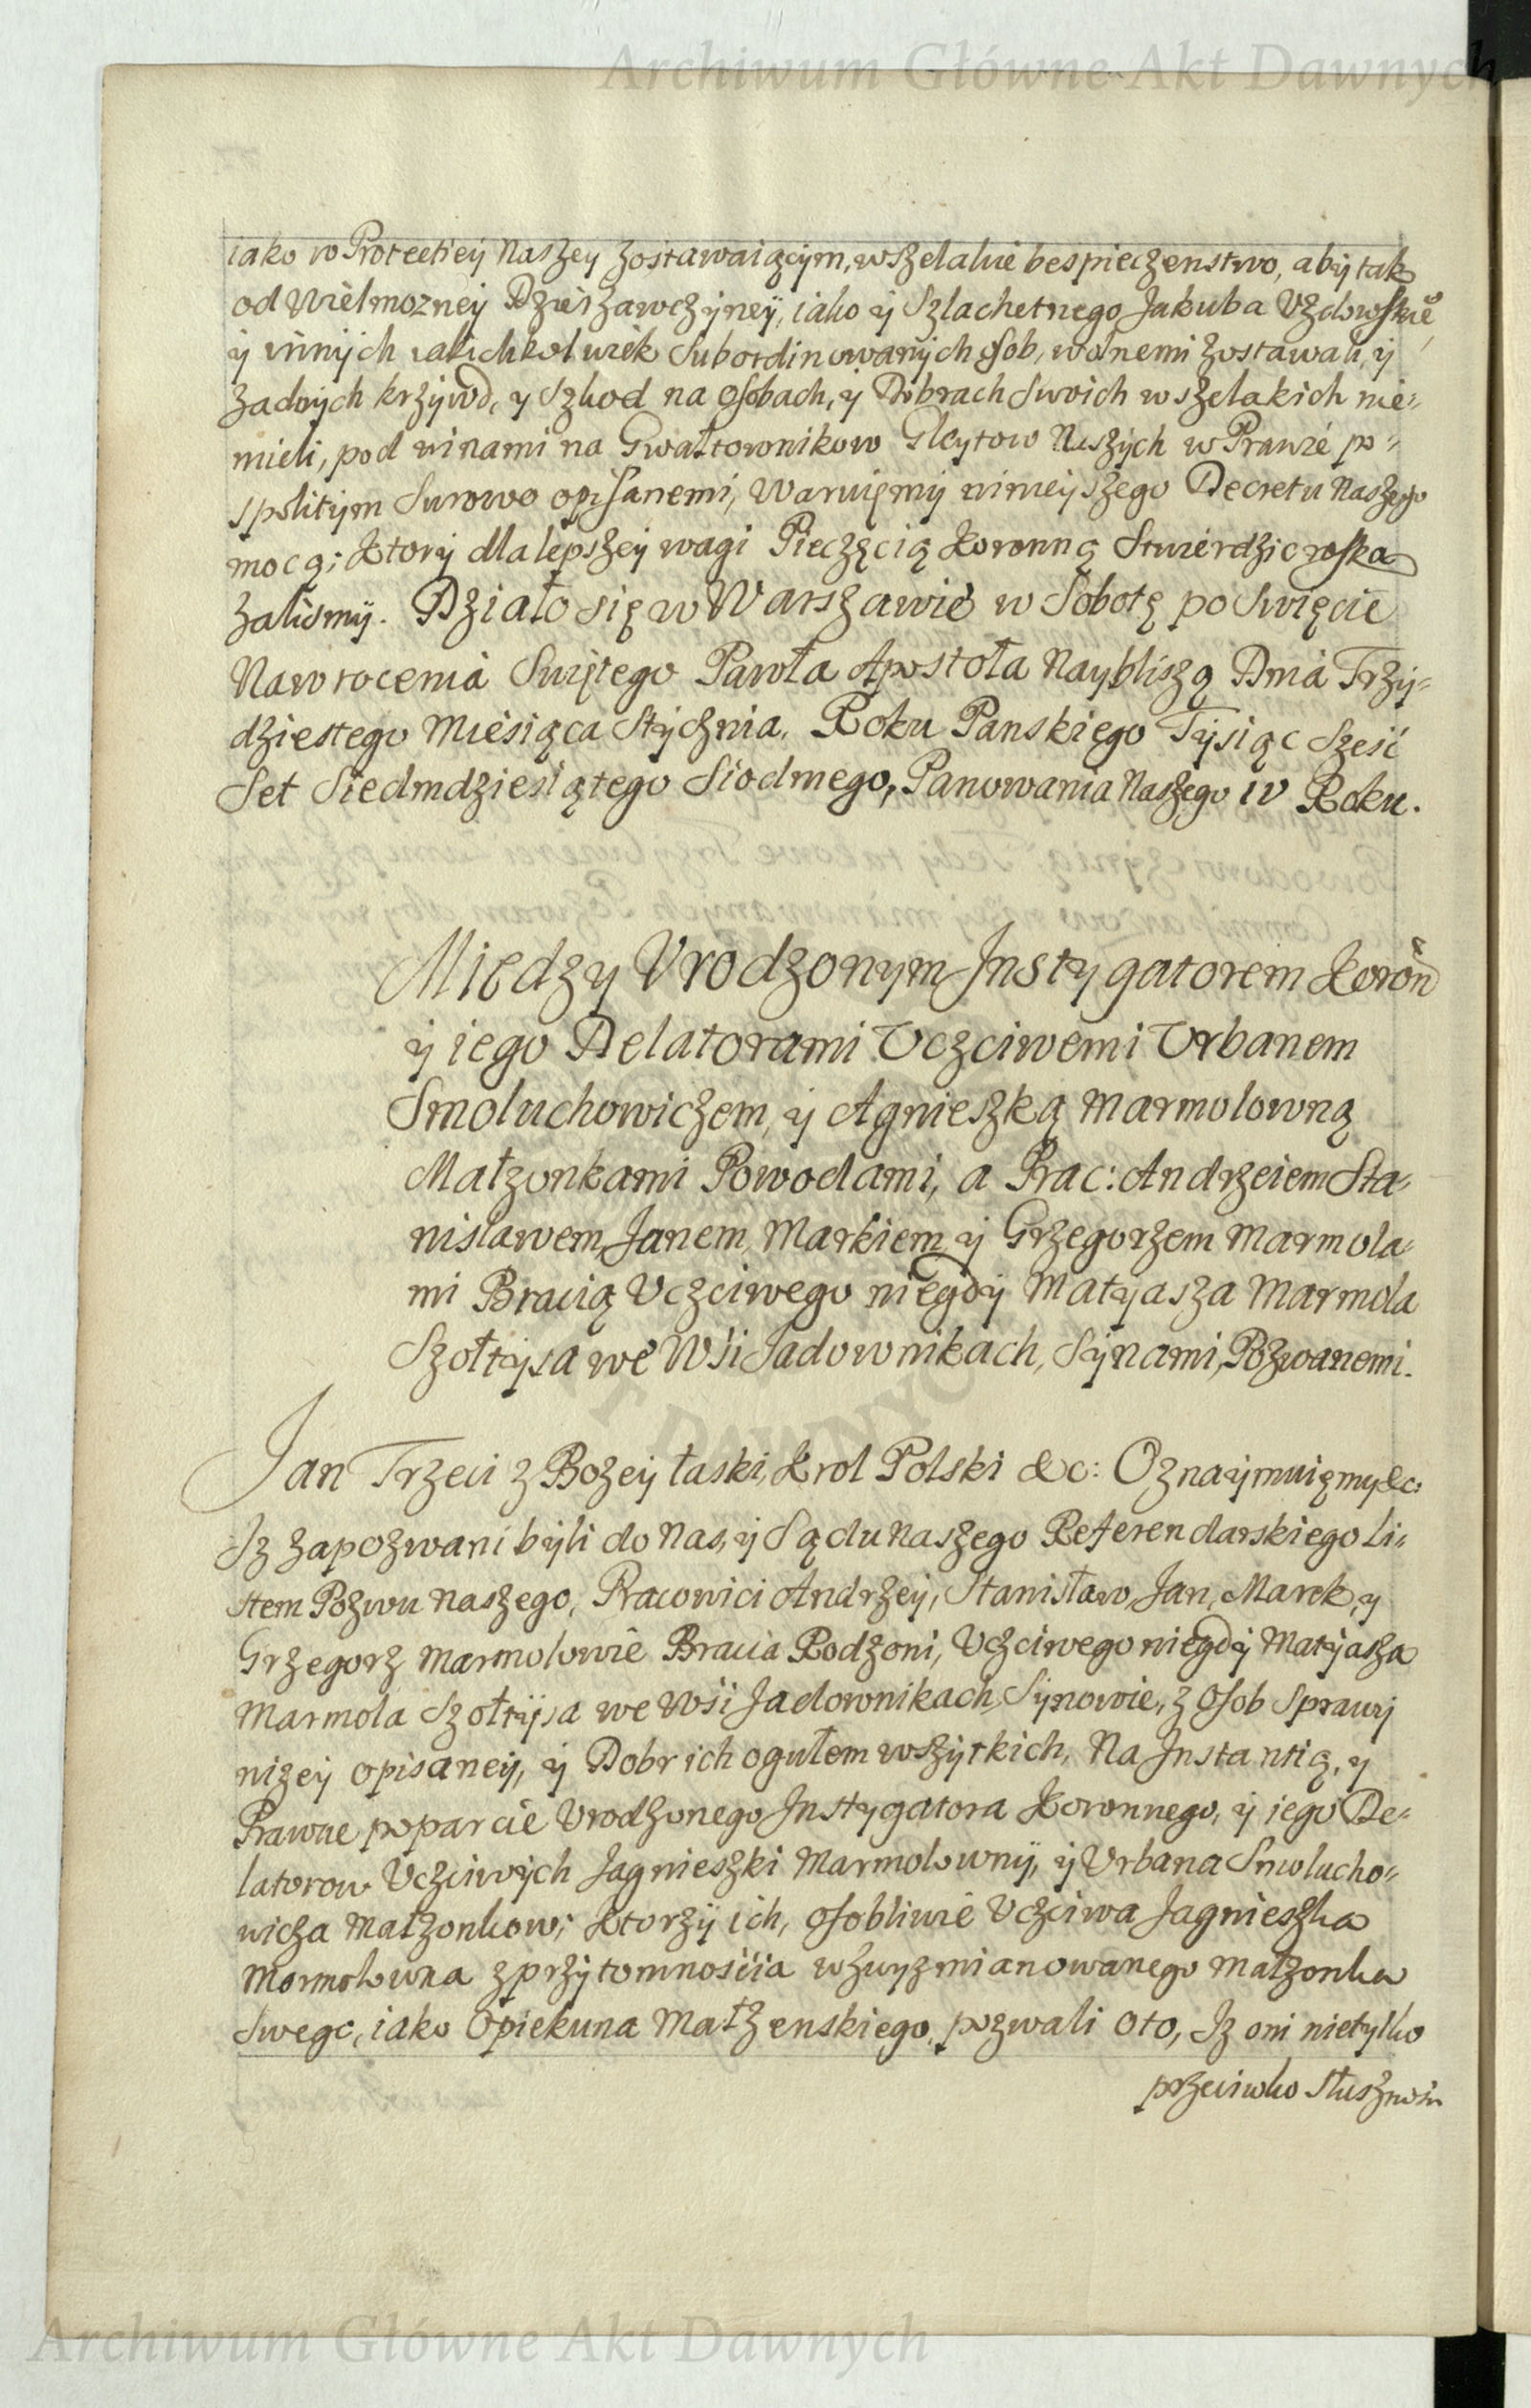 Archiwum Główne Akt Dawnych
iako w Protectiey Naszey zostawaiącym, wszelakie bespieczenstwo, aby tak
od Wielmozney Dzierzawczyney, iako y Szlachetnego Jakuba Vzdowskie͠
y innych iakichkolwiek Subordinowanych osob, wolnemi zostawali, y
zadnych krzywd, y Szkod na osobach, y Dobrach Swoich wszelakich nie-
mieli, pod winami na Gwałtownikow Gleytow Naszych w Prawie po-
spolitym Surowo opisanemi, Waruięmy ninieyszego Decretu Naszego
mocą; Ktory dla lepszey wagi Pieczęcią Koronną Stwierdzic roska
zalismy. Działo się w Warszawie w Sobotę po Swięcie
Nawrocenia Swiętego Pawła Apostoła Naybliszą Dnia Trzy-
dziestego Miesiąca Stycznia, Roku Panskiego Tysiąc Szesć
Set Siedmdziesiątego Siodmego, Panowania Naszego IV Roku.
Między Vrodzonym Instygatorem Koron
y iego Delatorami Vczciwemi Vrbanem
Smoluchowiczem, y Agnieszką Marmolowną
Małzonkami Powodami, a Prac: Andrzeiem Sta-
nisławem, Janem, Markiem y Grzegorzem Marmola-
mi Bracią Vczciwego niegdy Matyasza Marmola
Szołtysa we Wsi Jadownikach, Synami, Pozwanemi.
Jan Trzeci z Bozey łaski, Krol Polski &c: Oznaymuięmy &c:
Iz zapozwani byli do Nas, y Sądu Naszego Referendarskiego Li-
stem Pozwu Naszego, Pracowici Andrzey, Stanisław, Jan, Marek, y
Grzegorz Marmolowie Bracia Rodzoni, Vczciwego niegdy Matyasza
Marmola Szołtysa we Wsi Jadownikach, Synowie, z osob Sprawy
nizey opisaney, y Dobr ich ogułem wszytkich, Na Instantią, y
Prawne poparcie Vrodzonego Instygatora Koronnego, y iego De-
latorow Vczciwych Jagnieszki Marmolowny, y Vrbana Smolucho-
wicza Małzonkow; Ktorzy ich, osobliwie Vczciwa Jagnieszka
Marmolowna z przytomnoscia wzwyzmianowanego Małzonka
Swego, iako Opiekuna Małzenskiego, pozwali oto, Iz oni nietylko
przeciwko Słusznosci
Archiwum Główne Akt Dawnych